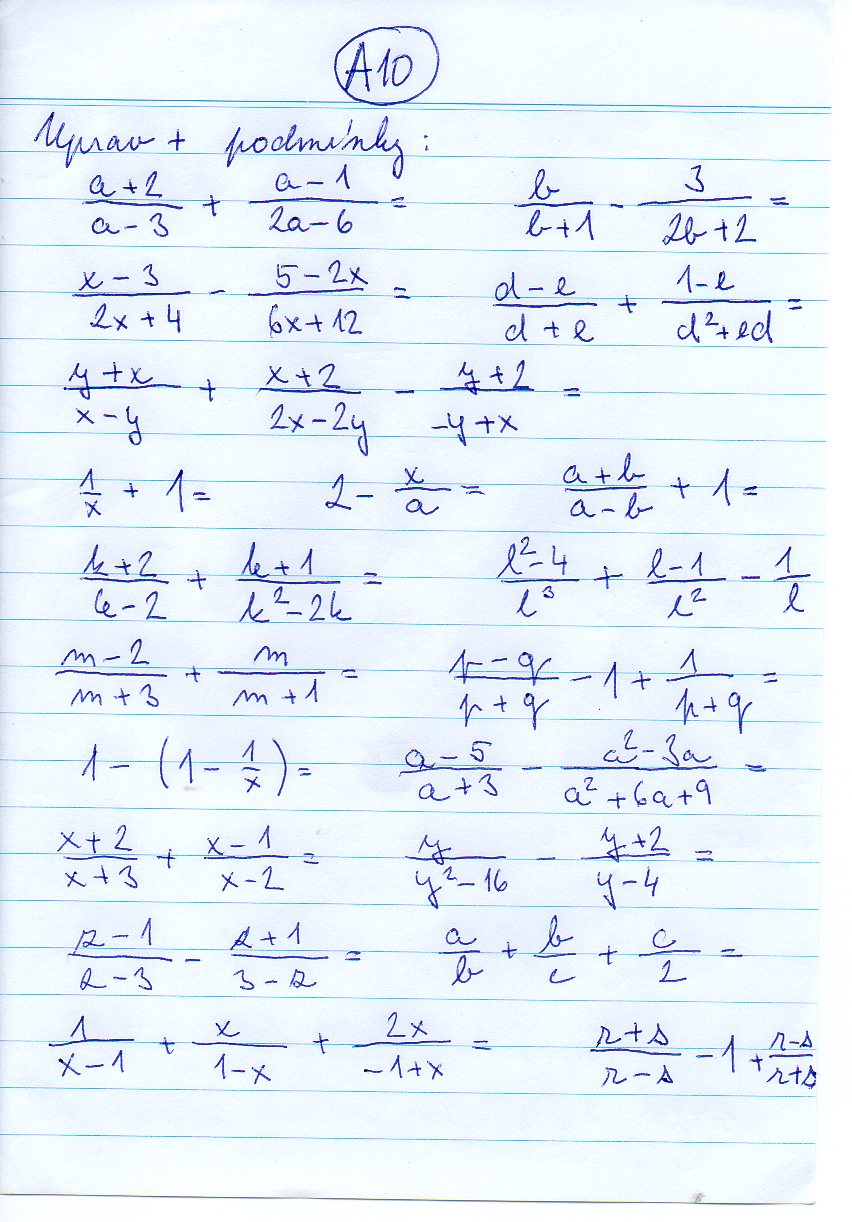 A10
Uprav + podmínky:
\frac{a+2}{a-3} + \frac{a-1}{2a-6} = \frac{b}{b+1} - \frac{3}{2b+2} =
\frac{x-3}{2x+4} - \frac{5-2x}{6x+12} = \frac{d-e}{d+e} + \frac{1-e}{d^2+ed} =
\frac{y+x}{x-y} + \frac{x+2}{2x-2y} - \frac{y+2}{-y+x} =
\frac{1}{x} + 1 = 2 - \frac{x}{a} = \frac{a+b}{a-b} + 1 =
\frac{k+2}{k-2} + \frac{k+1}{k^2-2k} = \frac{l^2-4}{l^3} + \frac{l-1}{l^2} - \frac{1}{l}
\frac{m-2}{m+3} + \frac{m}{m+1} = \frac{p-q}{p+q} - 1 + \frac{1}{p+q} =
1 - (1 - \frac{1}{x}) = \frac{a-5}{a+3} - \frac{a^2-3a}{a^2+6a+9} =
\frac{x+2}{x+3} + \frac{x-1}{x-2} = \frac{y}{y^2-16} - \frac{y+2}{y-4} =
\frac{z-1}{z-3} - \frac{z+1}{3-z} = \frac{a}{b} + \frac{b}{c} + \frac{c}{2} =
\frac{1}{x-1} + \frac{x}{1-x} + \frac{2x}{-1+x} = \frac{r+s}{r-s} - 1 + \frac{r-s}{r+s}